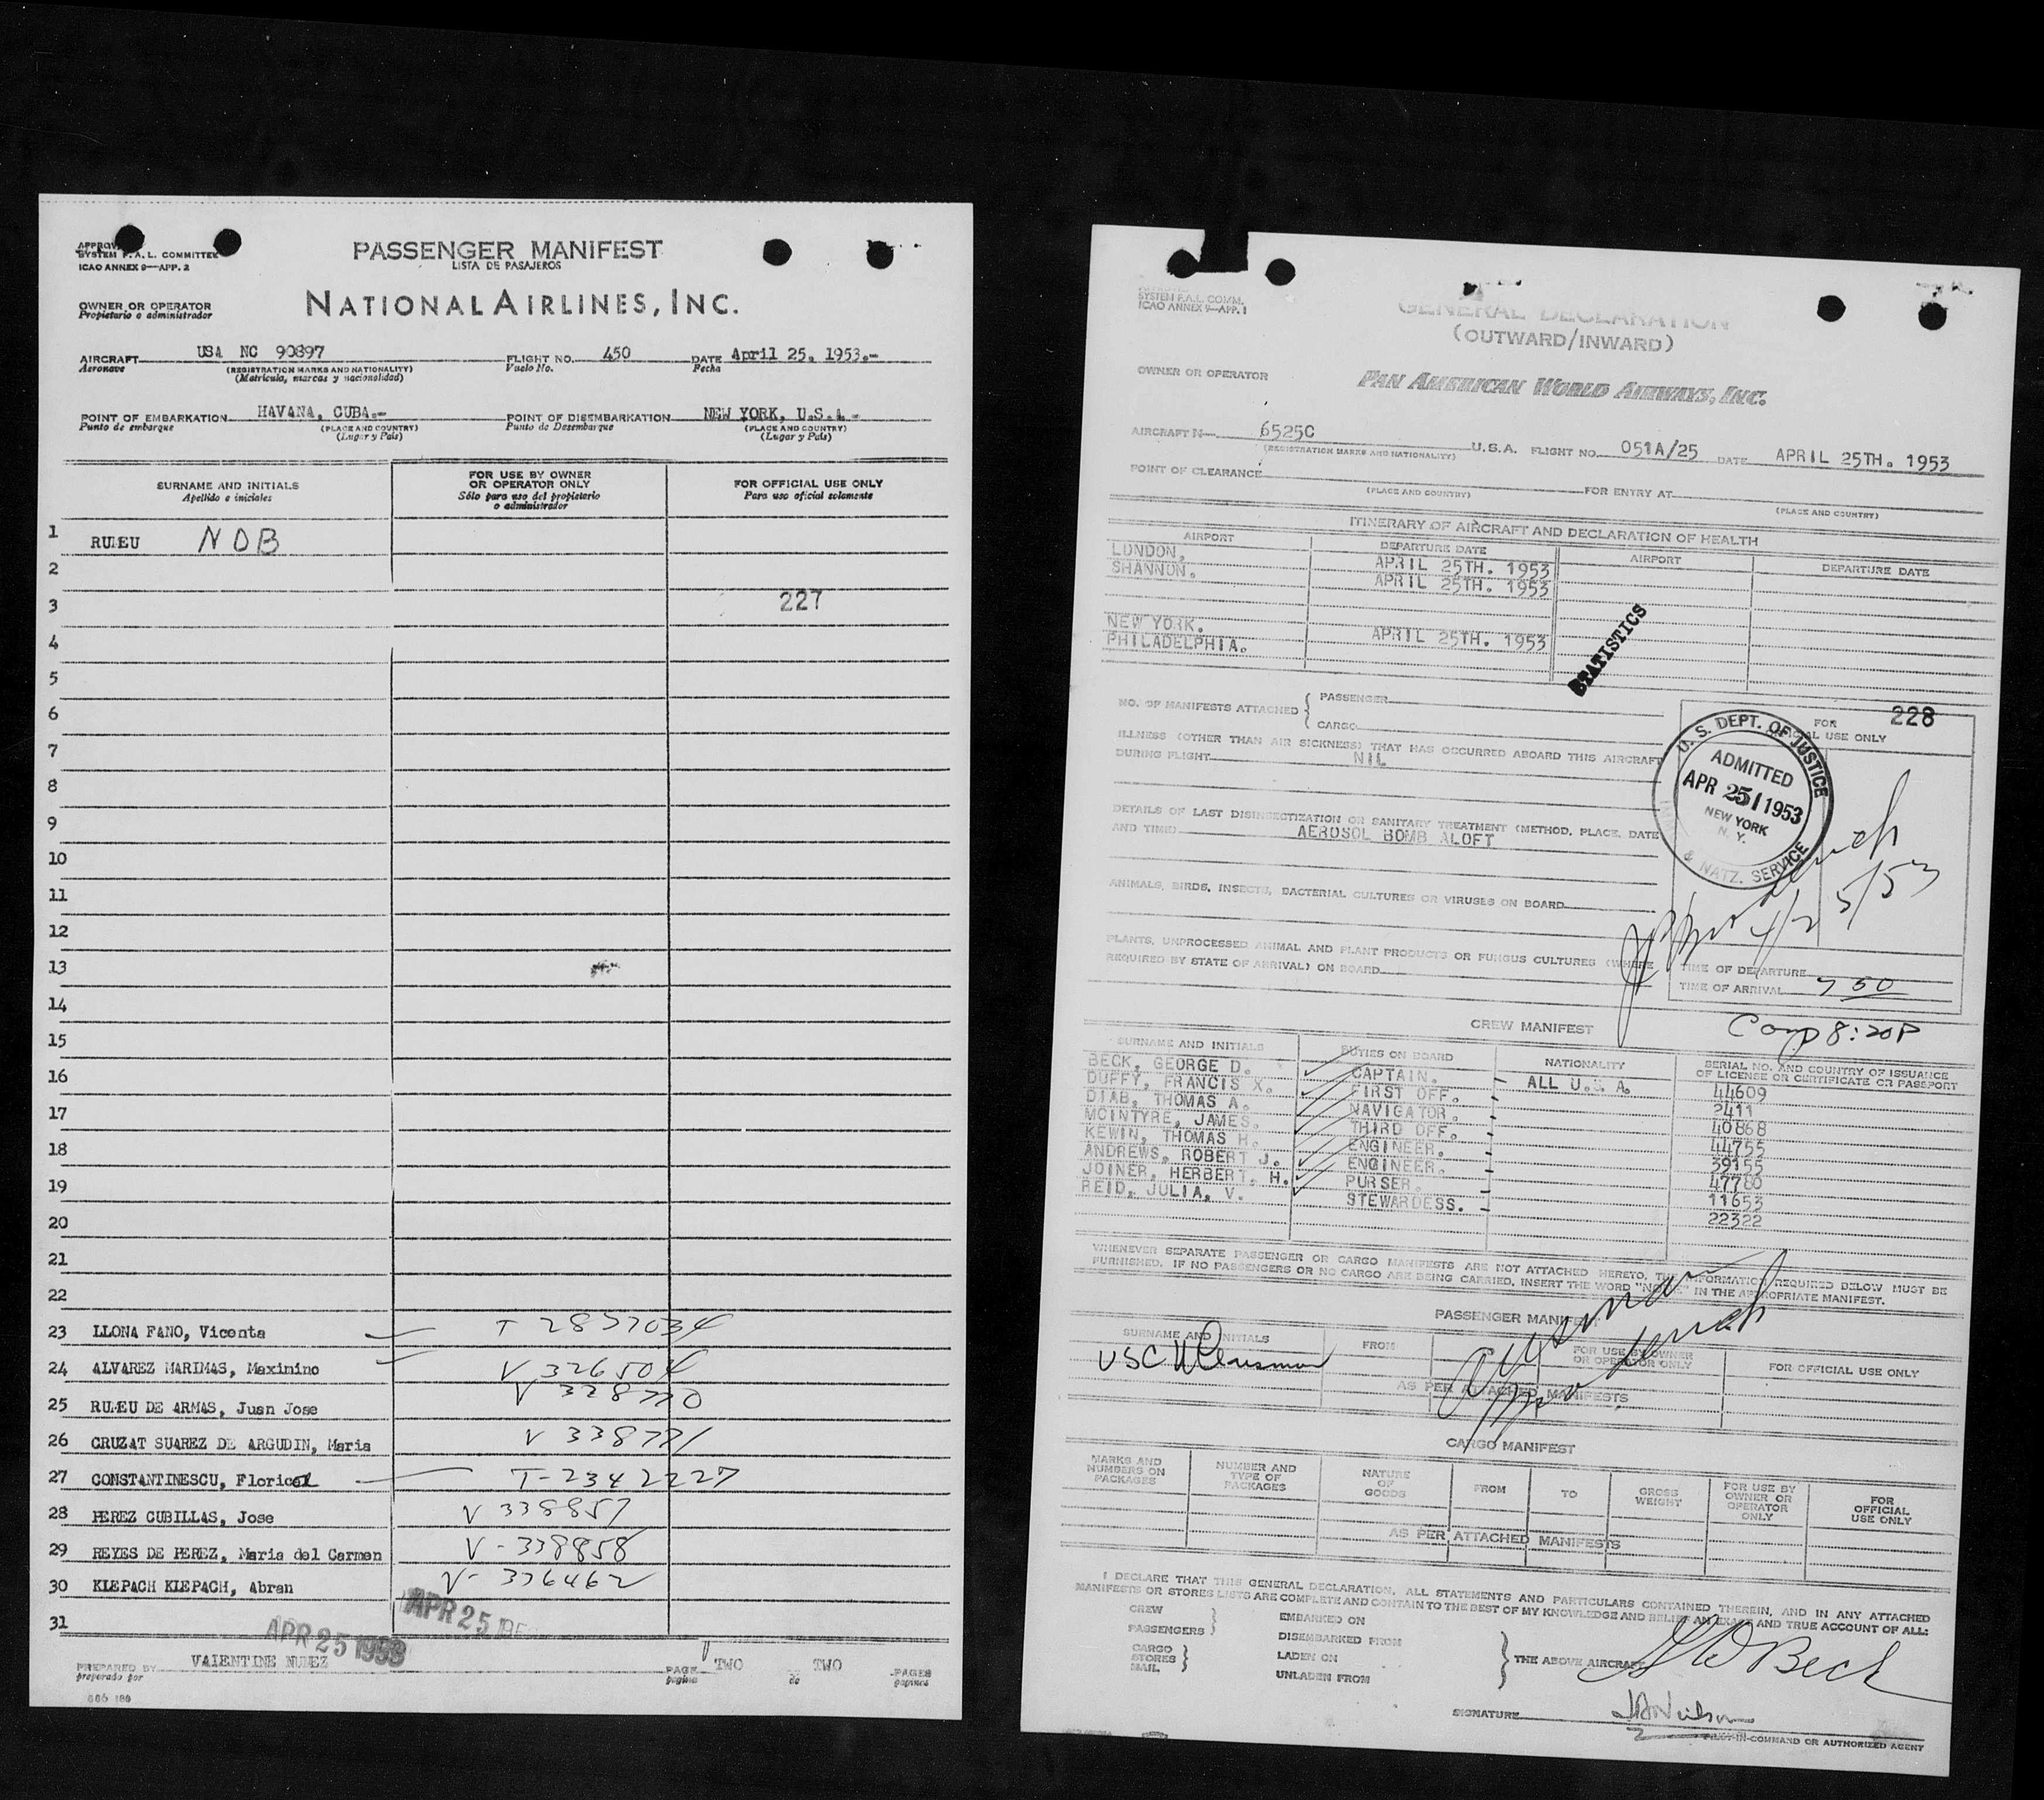 APPROVED
SYSTEM F.A.L. COMMITTEE
ICAO ANNEX 9—APP. 2
PASSENGER MANIFEST
LISTA DE PASAJEROS
OWNER OR OPERATOR
Propietario o administrador
NATIONAL AIRLINES, INC.
AIRCRAFT USA NC 90897 FLIGHT NO. 450 DATE April 25. 1953.-
Aeronave (REGISTRATION MARKS AND NATIONALITY) Vuelo No. Fecha
(Matrícula, marcas y nacionalidad)
POINT OF EMBARKATION HAVANA, CUBA.- POINT OF DISEMBARKATION NEW YORK, U.S.A.-
Punto de embarque (PLACE AND COUNTRY) Punto de Desembarque (PLACE AND COUNTRY)
(Lugar y País) (Lugar y País)
SURNAME AND INITIALS
Apellido e iniciales
FOR USE BY OWNER
OR OPERATOR ONLY
Sólo para uso del propietario
o administrador
FOR OFFICIAL USE ONLY
Para uso oficial solamente
1 RULEU NOB
2
3 227
4
5
6
7
8
9
10
11
12
13
14
15
16
17
18
19
20
21
22
23 LLONA FANO, Vicenta T 2857034
24 ALVAREZ MARIMAS, Maximino V 326504
25 RULEU DE ARMAS, Juan Jose V 338770
26 CRUZAT SUAREZ DE ARGUDIN, Maria V 338771
27 CONSTANTINESCU, Florical T-2342227
28 PEREZ CUBILLAS, Jose V 338857
29 REYES DE PEREZ, Maria del Carmen V-338858
30 KLEPACH KLEPACH, Abran V-336462
31
APR 25 1953
APR 25
PREPARED BY VALENTINE NUNEZ PAGE TWO TWO PAGES
preparado por pagina de paginas
SYSTEM F.A.L. COMM.
ICAO ANNEX 9—APP. 1
GENERAL DECLARATION
(OUTWARD/INWARD)
OWNER OR OPERATOR PAN AMERICAN WORLD AIRWAYS, INC.
AIRCRAFT N 6525C U.S.A. FLIGHT NO. 051A/25 DATE APRIL 25TH. 1953
(REGISTRATION MARKS AND NATIONALITY)
POINT OF CLEARANCE FOR ENTRY AT
(PLACE AND COUNTRY) (PLACE AND COUNTRY)
ITINERARY OF AIRCRAFT AND DECLARATION OF HEALTH
AIRPORT DEPARTURE DATE AIRPORT DEPARTURE DATE
LONDON, APRIL 25TH. 1953
SHANNON. APRIL 25TH. 1953
NEW YORK. APRIL 25TH. 1953
PHILADELPHIA.
STATISTICS
NO. OF MANIFESTS ATTACHED { PASSENGER
CARGO
FOR 228
OFFICIAL USE ONLY
ILLNESS (OTHER THAN AIR SICKNESS) THAT HAS OCCURRED ABOARD THIS AIRCRAFT
DURING FLIGHT NIL
U. S. DEPT. OF JUSTICE
ADMITTED
APR 25 1953
NEW YORK
N. Y.
& NATZ. SERVICE
DETAILS OF LAST DISINSECTIZATION OR SANITARY TREATMENT (METHOD, PLACE, DATE
AND TIME) AEROSOL BOMB ALOFT
ANIMALS, BIRDS, INSECTS, BACTERIAL CULTURES OR VIRUSES ON BOARD
4/25/53
PLANTS, UNPROCESSED ANIMAL AND PLANT PRODUCTS OR FUNGUS CULTURES (WHERE
REQUIRED BY STATE OF ARRIVAL) ON BOARD
TIME OF DEPARTURE
TIME OF ARRIVAL 7 50
Comp 8:20P
CREW MANIFEST
SURNAME AND INITIALS DUTIES ON BOARD NATIONALITY SERIAL NO. AND COUNTRY OF ISSUANCE
OF LICENSE OR CERTIFICATE OR PASSPORT
BECK, GEORGE D. CAPTAIN. ALL U.S.A. 44609
DUFFY, FRANCIS X. FIRST OFF. 2411
DIAB, THOMAS A. NAVIGATOR. 40868
MCINTYRE, JAMES. THIRD OFF. 44755
KEWIN, THOMAS H. ENGINEER. 39155
ANDREWS, ROBERT J. ENGINEER. 47780
JOINER, HERBERT, H. PURSER. 11653
REID, JULIA, V. STEWARDESS. 22322
WHENEVER SEPARATE PASSENGER OR CARGO MANIFESTS ARE NOT ATTACHED HERETO, THE INFORMATION REQUIRED BELOW MUST BE
FURNISHED. IF NO PASSENGERS OR NO CARGO ARE BEING CARRIED, INSERT THE WORD "NONE" IN THE APPROPRIATE MANIFEST.
PASSENGER MANIFEST
SURNAME AND INITIALS FROM FOR USE BY OWNER
OR OPERATOR ONLY FOR OFFICIAL USE ONLY
USC
AS PER ATTACHED MANIFESTS
CARGO MANIFEST
MARKS AND
NUMBERS ON
PACKAGES
NUMBER AND
TYPE OF
PACKAGES
NATURE
OF
GOODS
FROM
TO
GROSS
WEIGHT
FOR USE BY
OWNER OR
OPERATOR
ONLY
FOR
OFFICIAL
USE ONLY
AS PER ATTACHED MANIFESTS
I DECLARE THAT THIS GENERAL DECLARATION, ALL STATEMENTS AND PARTICULARS CONTAINED THEREIN, AND IN ANY ATTACHED
MANIFESTS OR STORES LISTS ARE COMPLETE AND CONTAIN TO THE BEST OF MY KNOWLEDGE AND BELIEF AN EXACT AND TRUE ACCOUNT OF ALL:
CREW
PASSENGERS }
EMBARKED ON
DISEMBARKED FROM
CARGO
STORES
MAIL }
LADEN ON
UNLADEN FROM
} THE ABOVE AIRCRAFT
G D Beck
SIGNATURE
PILOT-IN-COMMAND OR AUTHORIZED AGENT